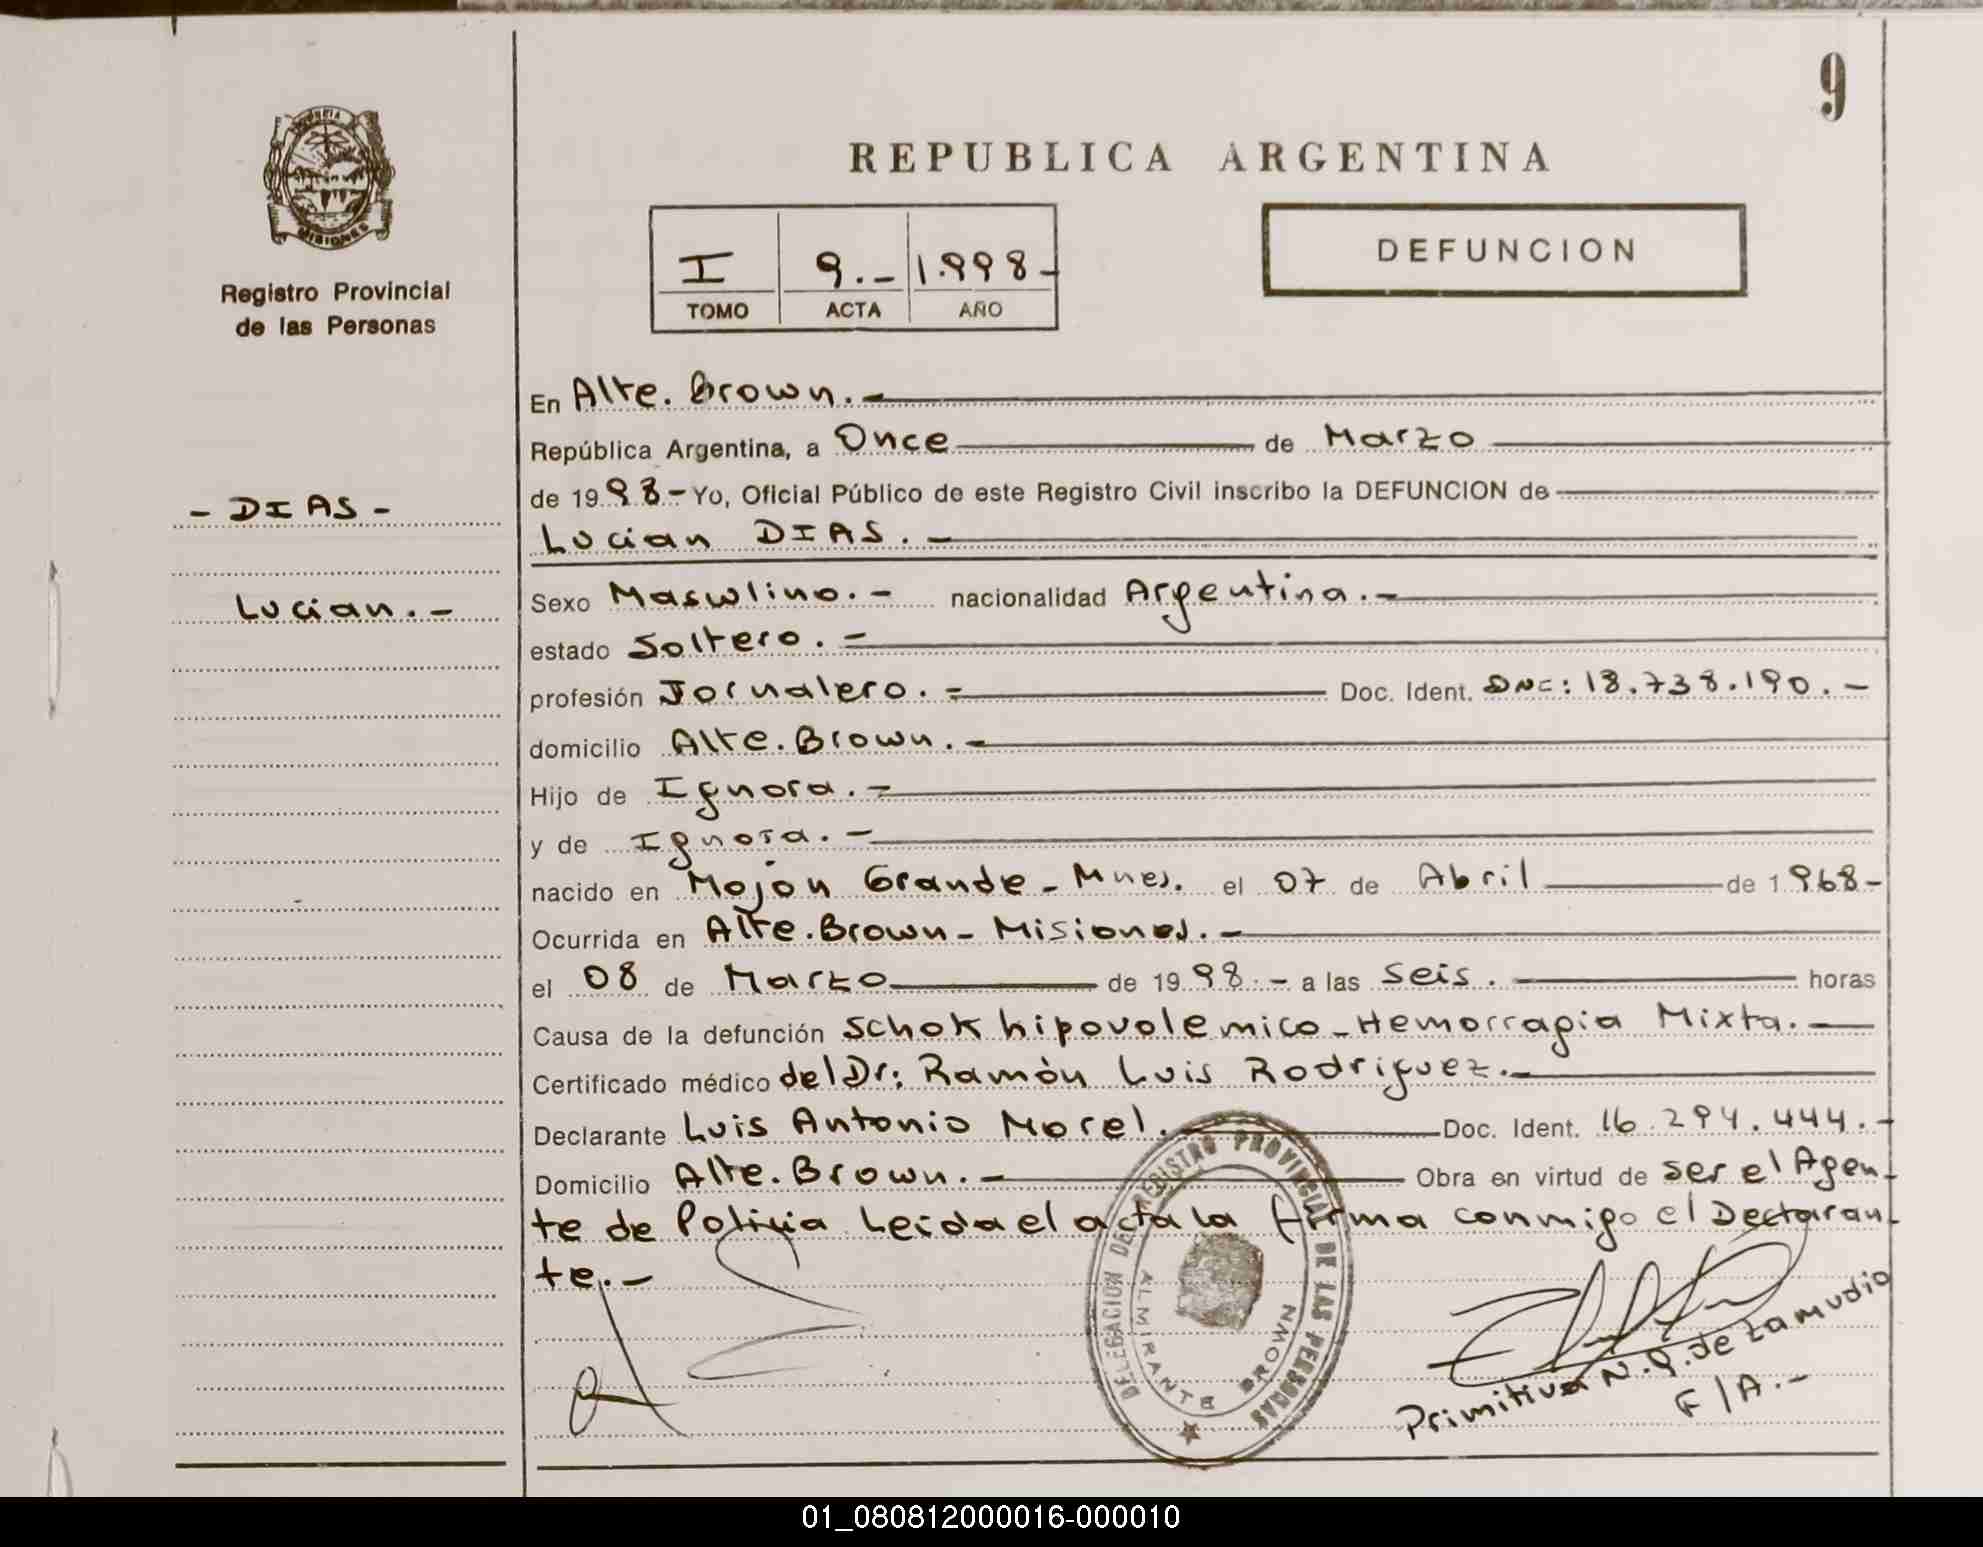 9
REPUBLICA ARGENTINA
MISIONES
Registro Provincial
de las Personas
I 9.- 1.998-
TOMO ACTA AÑO
DEFUNCION
- DIAS -
Lucian.-
En Alte. Brown.-
República Argentina, a Once de Marzo
de 1998- Yo, Oficial Público de este Registro Civil inscribo la DEFUNCION de
Lucian DIAS.-
Sexo Masculino.- nacionalidad Argentina.-
estado Soltero.-
profesión Jornalero.- Doc. Ident. DNI: 18.738.190.-
domicilio Alte. Brown.-
Hijo de Ignora.-
y de Ignora.-
nacido en Mojón Grande - Mnes. el 07 de Abril de 1968-
Ocurrida en Alte. Brown - Misiones.-
el 08 de Marzo de 1998.- a las seis. horas
Causa de la defunción schok hipovolemico - Hemorragia Mixta.-
Certificado médico del Dr: Ramón Luis Rodriguez.-
Declarante Luis Antonio Morel.- Doc. Ident. 16.294.444.-
Domicilio Alte. Brown.- Obra en virtud de ser el Agen-
te de Policia Leida el acta la firma conmigo el Declaran-
te.-
DELEGACION DE REGISTRO PROVINCIAL DE LAS PERSONAS
ALMIRANTE BROWN
Primitiva N. Q. de Zamudio
F/A.-
01_080812000016-000010